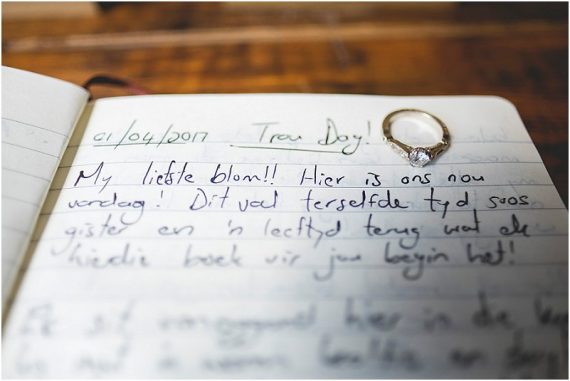 01/04/2017 Trou Dag!
My liefste blom!! Hier is ons nou
vandag! Dit voel terselfde tyd soos
gister en 'n leeftyd terug wat ek
hierdie boek vir jou begin het!
Ek sit vanoggend hier in die